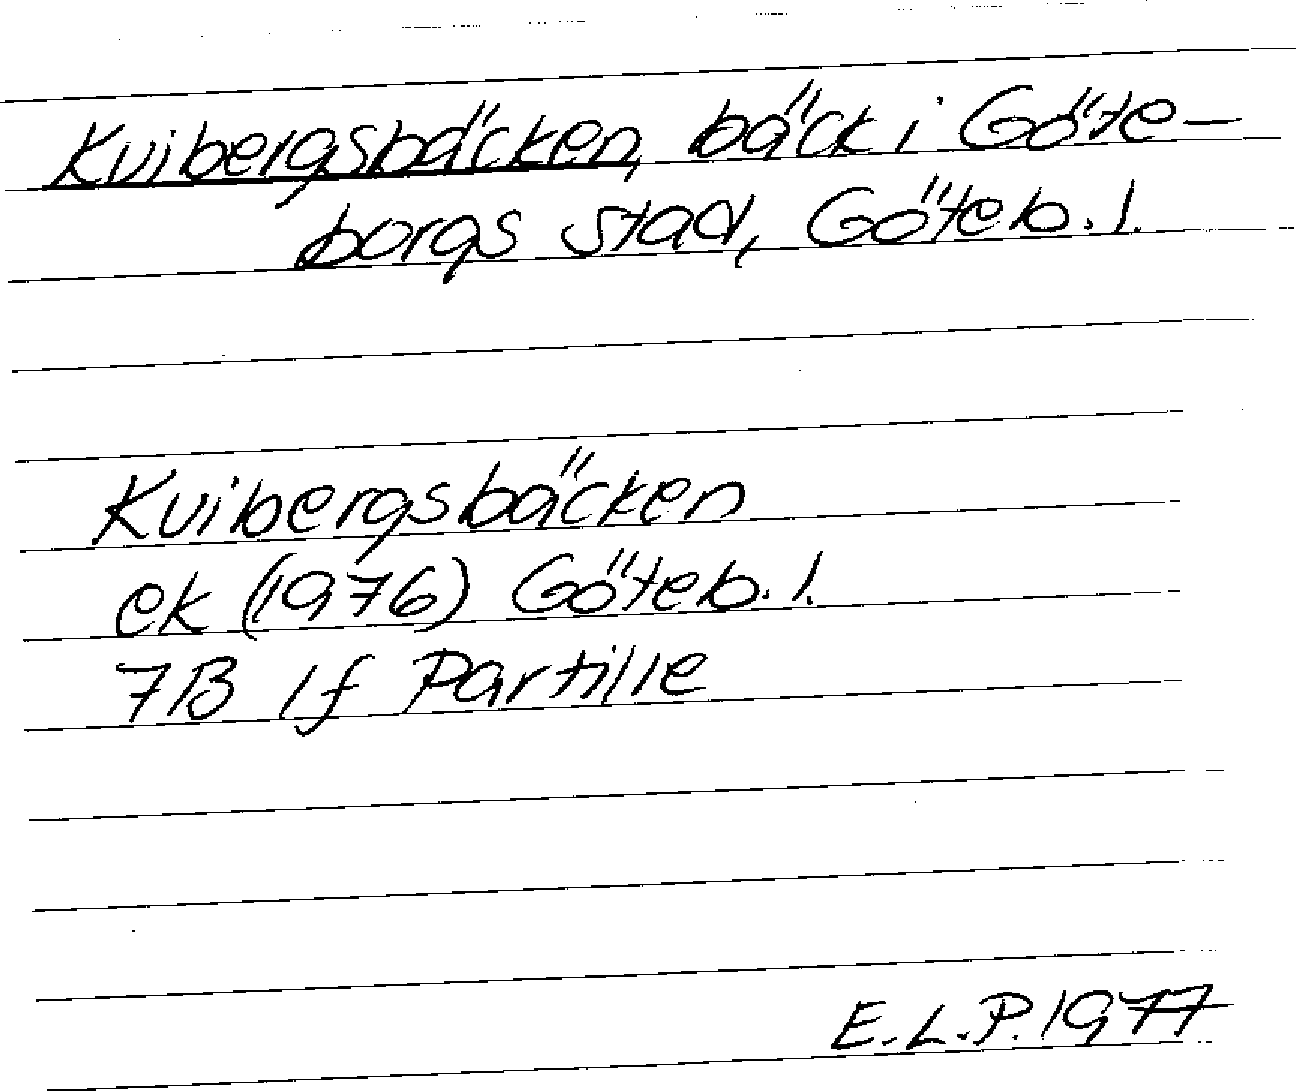 Kvibergsbäcken, bäck i Göte-
borgs stad, Göteb. l.
Kvibergsbäcken
ek (1976) Göteb. l.
7B 1f Partille
E.L.P. 1977